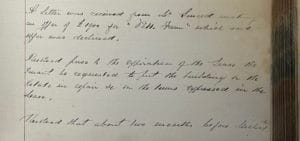 A letter was received from Mr Sinnett making
an offer of £2500 for "Pebb. Farm" which said
offer was declined.
Resolved prior to the expiration of the Lease the
tenant be requested to put the buildings on the
Estate in repair &c on the terms expressed in the
lease.
Resolved that about two months before